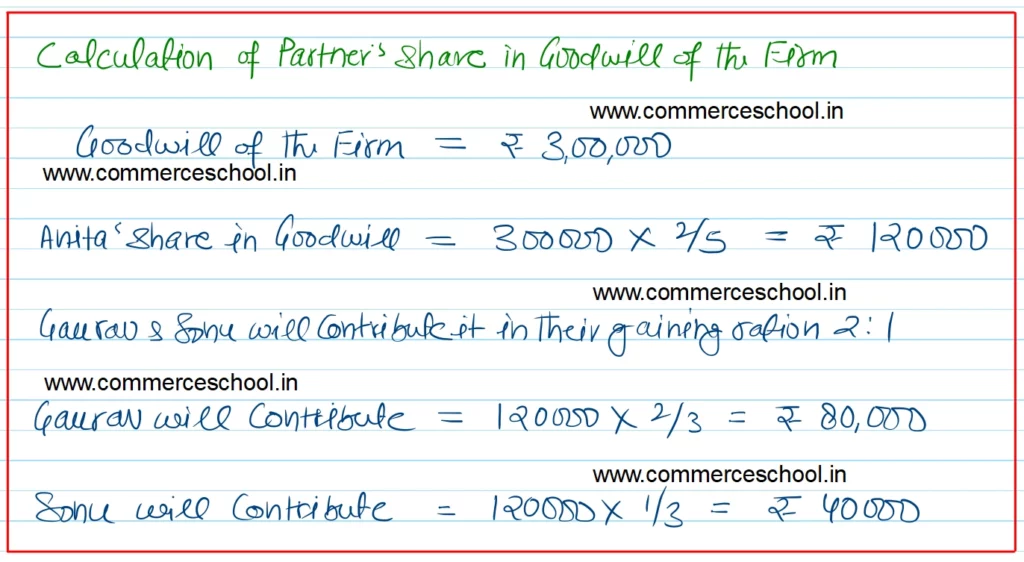 Calculation of Partner's Share in Goodwill of the Firm
www.commerceschool.in
Goodwill of the Firm = ₹ 3,00,000
www.commerceschool.in
Anita's Share in Goodwill = 300000 × 2/5 = ₹ 120000
www.commerceschool.in
Gaurav & Sonu will Contribute it in Their gaining ration 2:1
www.commerceschool.in
Gaurav will Contribute = 120000 × 2/3 = ₹ 80,000
www.commerceschool.in
Sonu will Contribute = 120000 × 1/3 = ₹ 40000